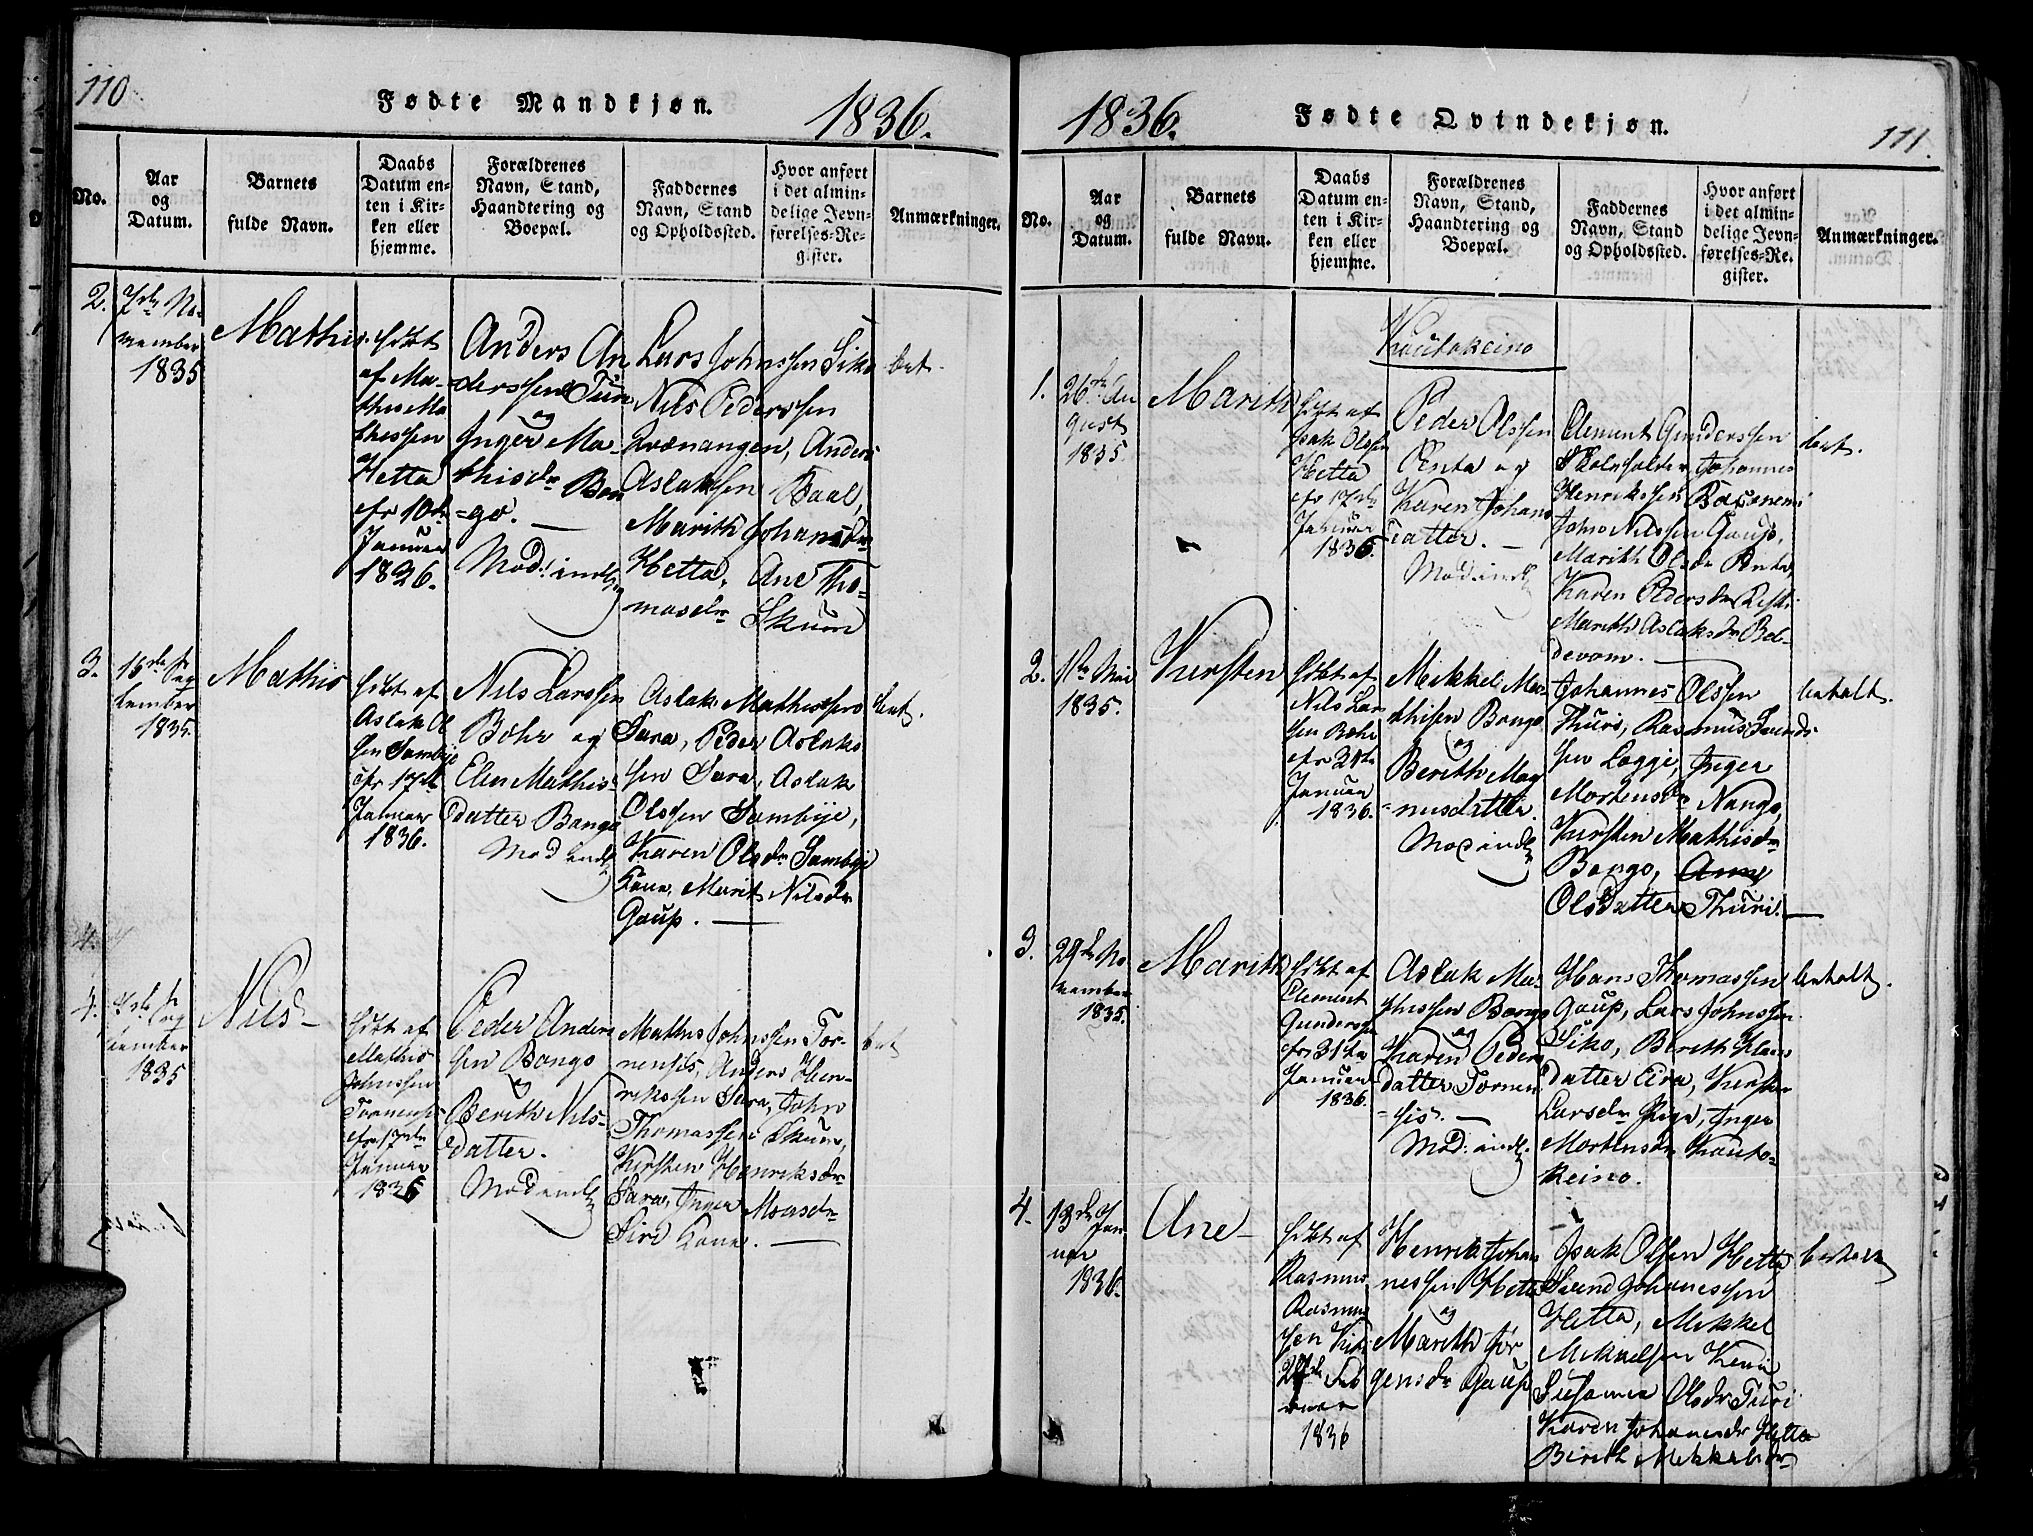 110
Fødte Mandkjøn.
1836.
No.
Aar
og
Datum.
Barnets
fulde Navn.
Daabs
Datum en-
ten i Kir-
ken eller
hjemme.
Forældrenes
Navn, Stand,
Haandtering og
Boepæl.
Faddernes
Navn, Stand
og Opholdssted.
Hvor anført
i det almin-
delige Jevn-
førelses-Re-
gister.
Anmærkninger.
2.
7de No-
vember
1835
Mathis
af Ma-
this Ma
thessen
Hetta
10de
Januar
1836.
Anders An
derssen Turi
og
Inger Ma-
thisdr Bon
-go.
Mod: indl
Lars Johnssen Siko
Nils Pederssen
Qvænangen, Anders
Aslaksen Baal,
Marith Johansdr
Hetta, Ane Tho-
masdr Skum
bet.
3.
tember
1835.
Mathis
døbt af
Aslak Ol
sen Sombye
17de
Januar
1836.
Nils Larssen
Bähr og
Elen Mathis-
datter Bango
Mod indl
Aslak Mathissen
Sara, Peder Aslak-
sen Sara, Aslak
Olssen Sombye,
Karen Olsdr Sombye
Kone, Marit Nilsdr
Gaup.
bet.
4.
4.
tember
1835
Nils
døbt af
Mathis
Johnssen
Tornensis
17de
Januar
1836
Peder Anders
sen Bongo
og
Berith Nils-
datter.
Mod indl
Mathis Johnssen Tor-
nensis, Anders Hen-
rikssen Sara, John
Thomassen Skum,
Kirsten Henriksdr
Sara, Inger Monsdr
Siri Kone.
bet
1836.
Fødte Qvindekjøn.
111.
No.
Aar
og
Datum.
Barnets
fulde Navn.
Daabs
Datum en-
ten i Kir-
ken eller
hjemme.
Forældrenes
Navn, Stand,
Haandtering og
Boepæl.
Faddernes
Navn, Stand
og Opholdssted.
Hvor anført
i det almin-
delige Jevn-
førelses-Re-
gister.
Anmærkninger.
Koutokeino
1.
26de Au
gust
1835.
Marith
døbt af
Isak Olsen
Hetta
17de
Januar
1836.
Peder Olssen
Penta og
Karen Johans
datter.
Mod indl
Clement Gunderssen
Skoleholder, Johannes
Henrikssen
John Nilssen Gaup,
Marith Olsdr Penta
Karen Pedersdr
Marith Aslaksdr Bel-
devom.
bet.
2.
1ste Mai
1835.
Kirsten
døbt af
Nils Lar
sen Bähr
Januar
1836.
Mikkel Ma-
thisen Bongo
og
Berith Mag
-nusdatter
Mod indl
Johannes Olssen
Thuri, Rasmus Svends
sen Logje, Inger
Mortensdr Nango,
Kirsten Mathisdr
Bongo, Ane
Olsdatter Thuri.
betalt.
3.
29de No
vember
1835.
Marith
døbt af
Clement
Gunderssen
31te
Januar
1836.
Aslak Ma-
thissen Bongo
og
Karen Peders
datter Tornen
-sis.
Mod: indl.
Hans Thomassen
Gaup, Lars Johnssen
Siko, Berith Klaus
datter Eira, Kirsten
Larsdr Inger
Mortensdr Kauto-
keino.
betalt.
4.
13de Jan
uar
1836.
Ane
døbt af
Rasmus
Rasmus
sen
Feb
ruar
1836
Henrik Johan
nessen Hetta
og
Marith Jør
gensdr Gaup
Isak Olsen Hetta
Svend Johannessen
Hetta, Mikkel
Mikkelsen
Susanna Olsdr Turi
Karen Johannesdr Hetta
Berith Mikkelsdr